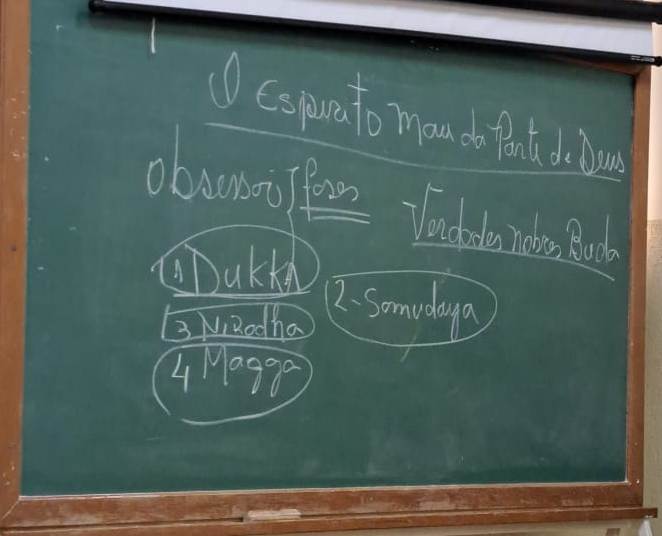 O Espirito Mau da Parte de Deus
Obsessois fases
Verdades nobres Buda
1) Dukkha
2-Samudaya
3 Nirodha
4 Magga